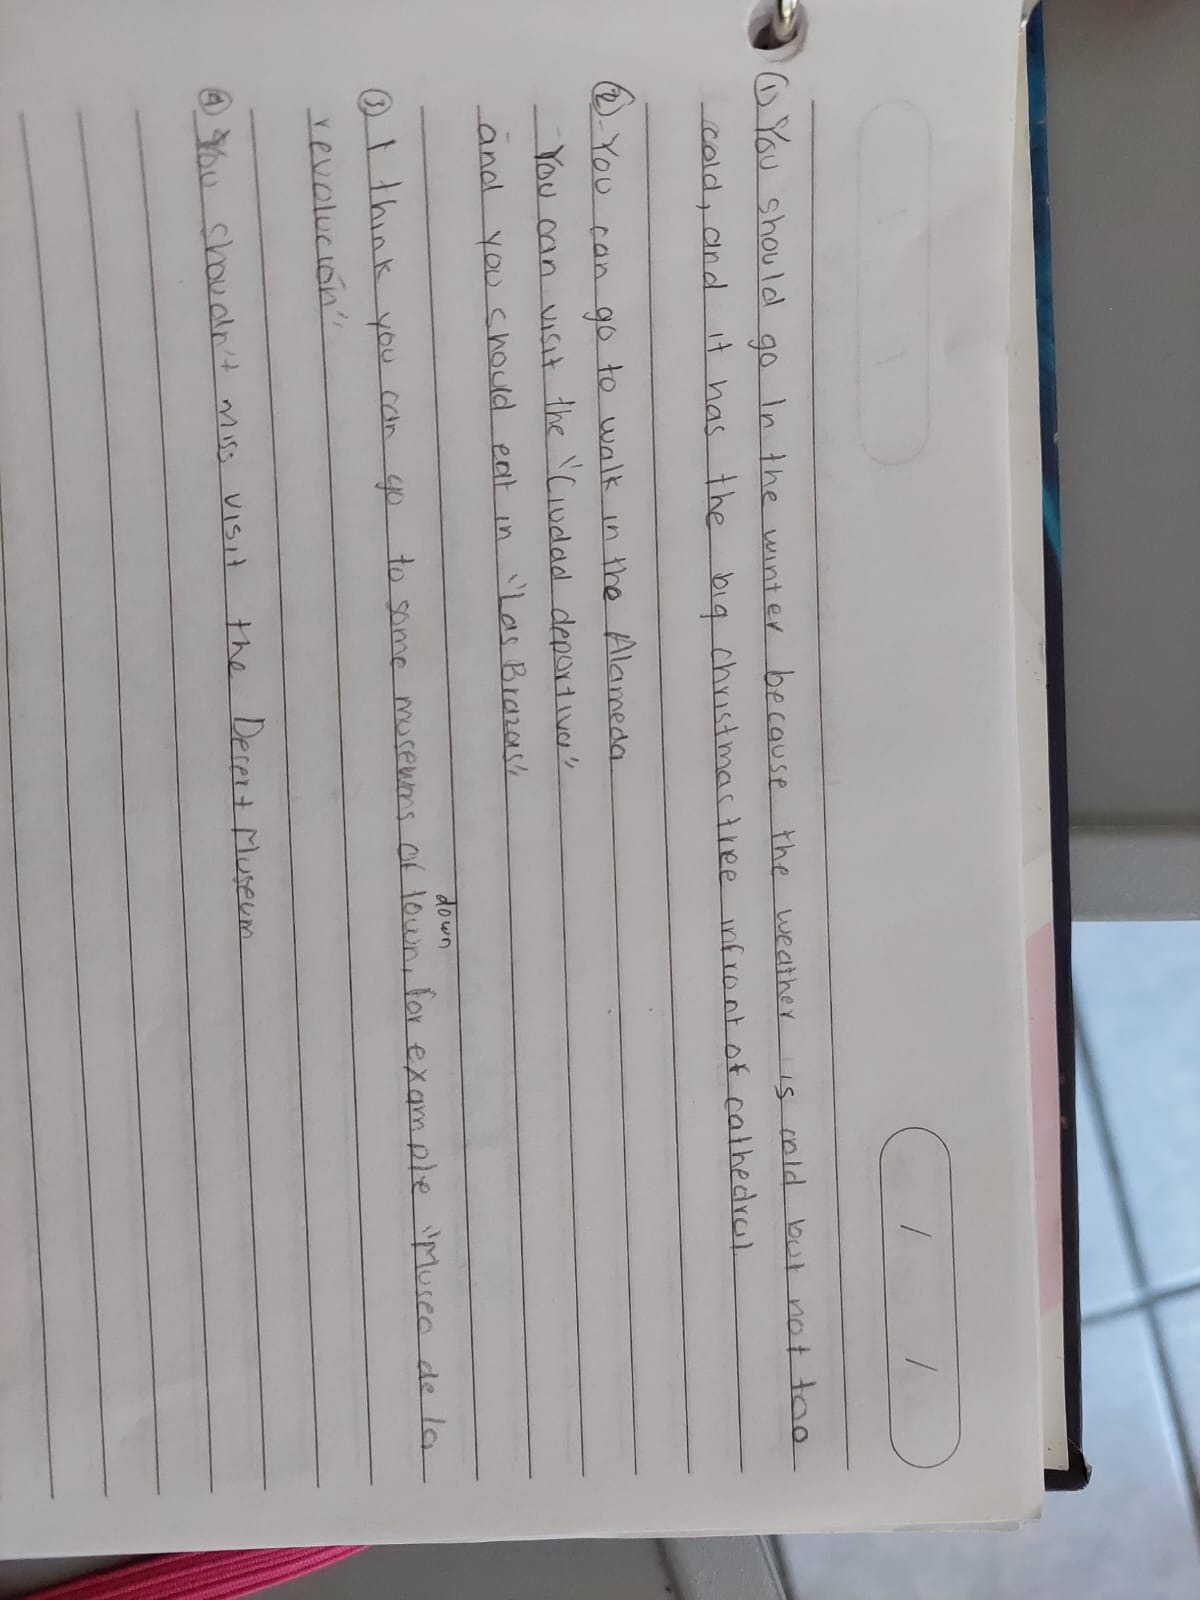 ① You should go In the winter because the weather is cold but not too
cold, and it has the big christmas tree infront of cathedral
② - You can go to walk in the Alameda
- You can visit the "Ciudad deportiva"
and you should eat in "Las Brazas"
③ I think you can go to some museums of town, for example "Museo de la
down
revolución"
④ You shoudn't miss visit the Desert Museum